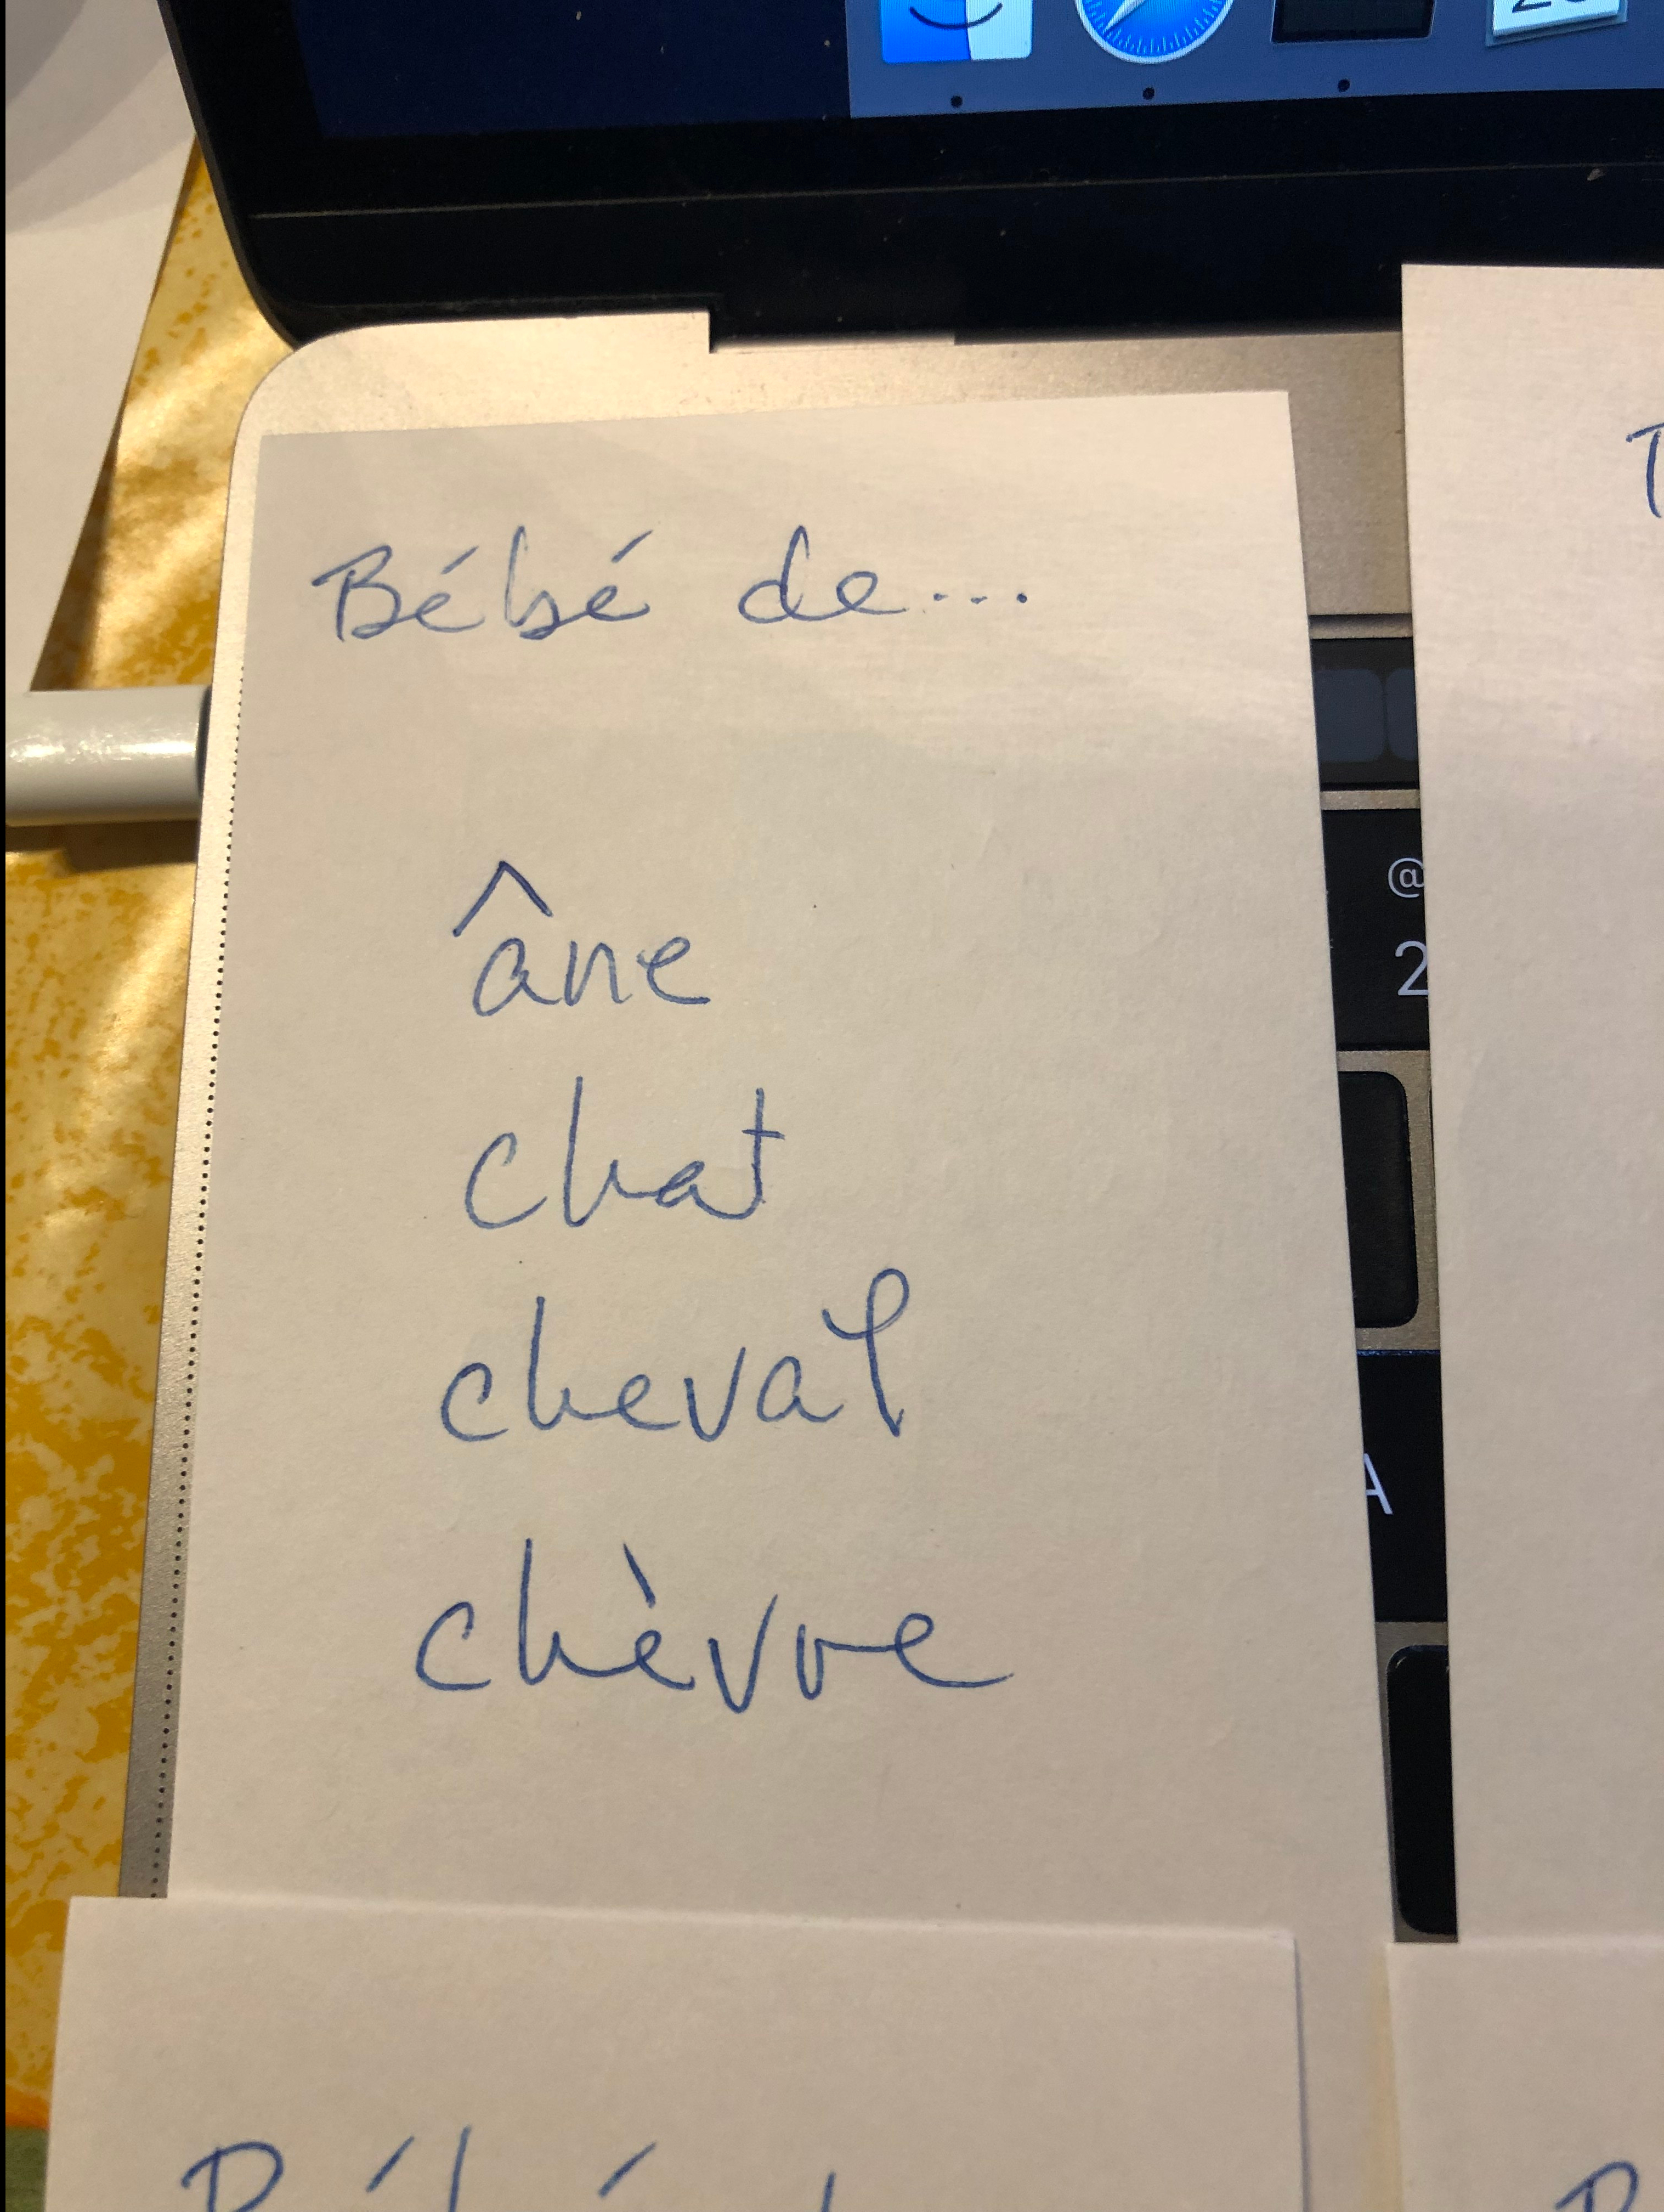 Bébé de...
âne
chat
cheval
chèvre
@
2
A